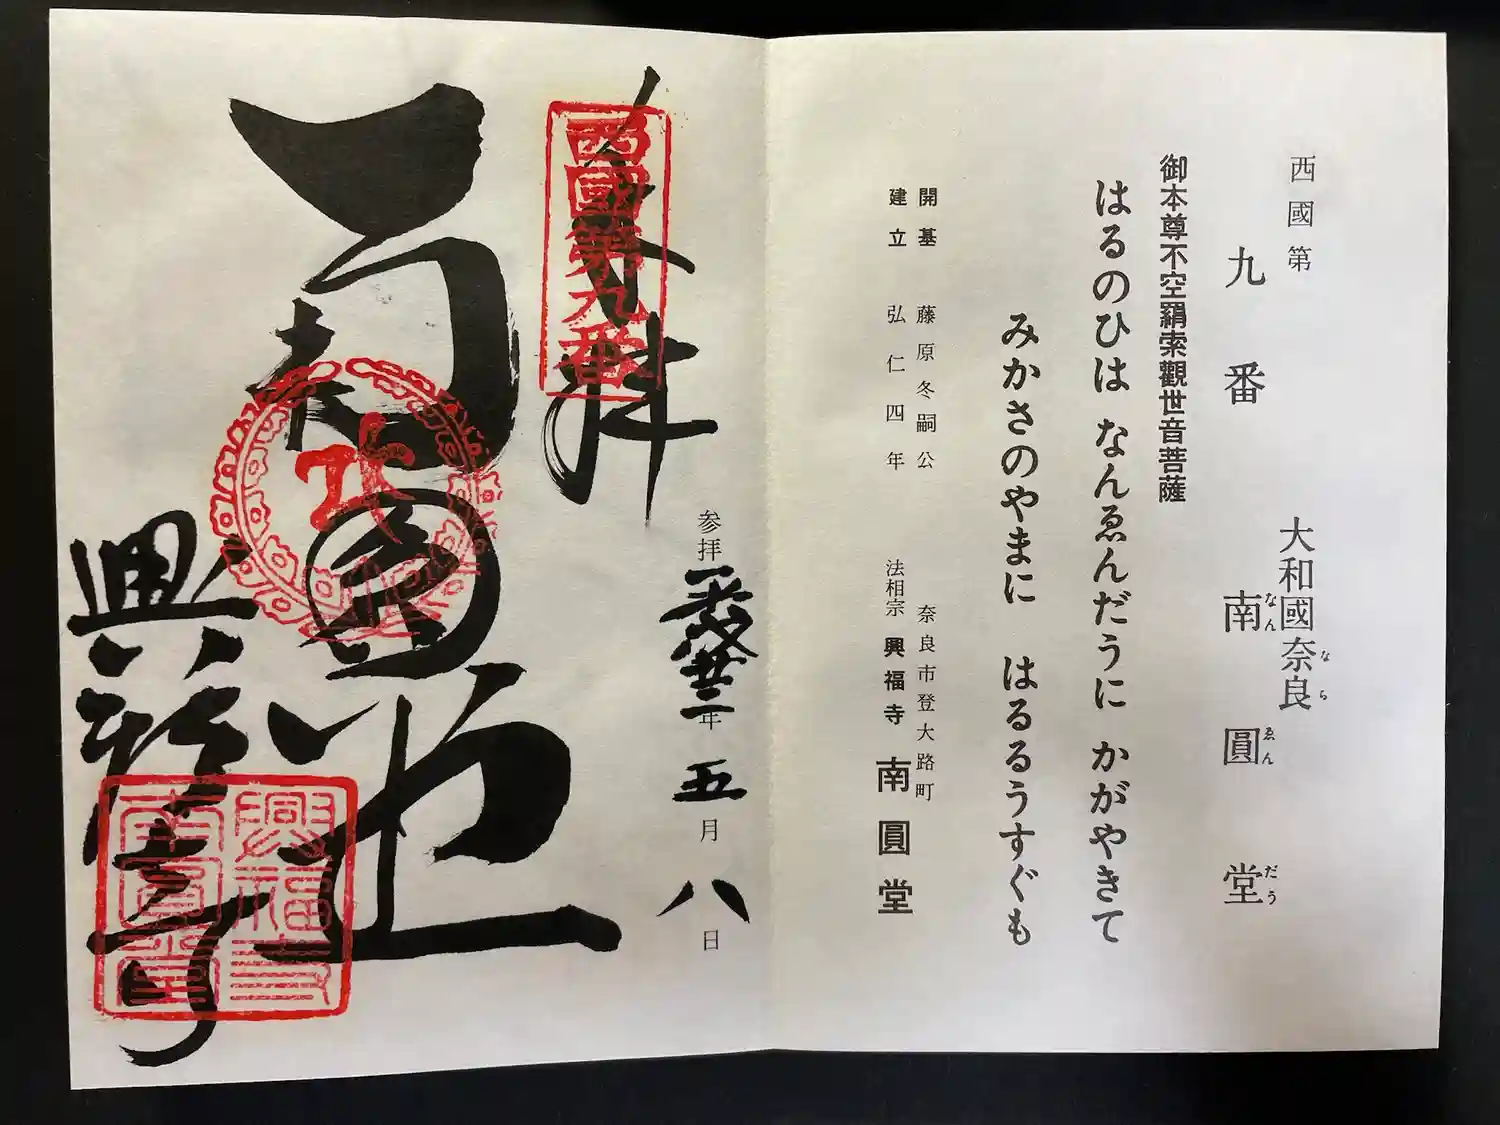 西國第
九番
大和國奈良
なら
南圓堂
なんゑんだう
御本尊不空羂索觀世音菩薩
はるのひは なんゑんだうに かがやきて
みかさのやまに はるるうすぐも
開基 藤原冬嗣公
建立 弘仁四年
奈良市登大路町
法相宗 興福寺 南圓堂
奉拝
西國第九番
参拝 平成廿二年 五月 八日
南圓堂
興福寺
興福寺
南圓堂